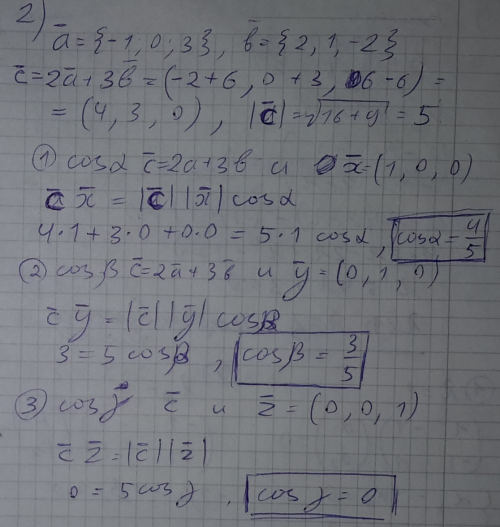 2)
ā = {-1, 0; 3}, b̄ = {2, 1, -2}
c̄ = 2ā + 3b̄ = (-2+6, 0+3, 6-6) =
= (4, 3, 0), |c̄| = √16+9 = 5
① cosα c̄=2a+3b и x̄=(1, 0, 0)
c̄ x̄ = |c̄| |x̄| cosα
4·1 + 3·0 + 0·0 = 5·1 cosα, cosα = 4/5
② cosβ c̄=2ā+3b̄ и ȳ = (0, 1, 0)
c̄ ȳ = |c̄| |ȳ| cosβ
3 = 5 cosβ, cosβ = 3/5
③ cosγ c̄ и z̄ = (0, 0, 1)
c̄ z̄ = |c̄| |z̄|
0 = 5cosγ, cosγ = 0